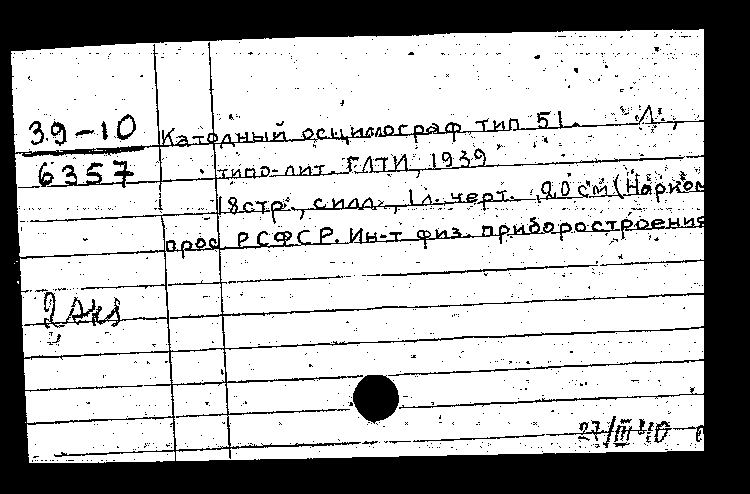 39-10
6357
Катодный осциллограф тип 51. Л.,
типо-лит. ГЛТИ, 1939
18стр., с илл., 1л. черт. 20 см (Нарком
прос РСФСР. Ин-т физ. приборостроения
2 экз
27/III 40